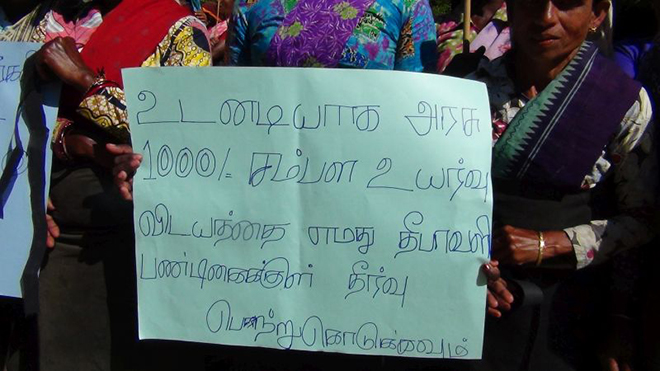 உடனடியாக அரசு
1000/- சம்பள உயர்வு
விடயத்தை எமது தீபாவளி
பண்டிகைக்குள் தீர்வு
பெற்றுகொடுக்கவும்